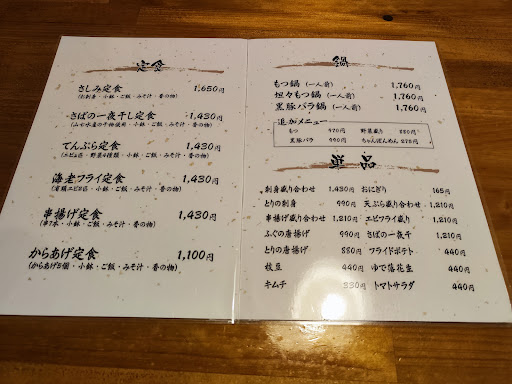 定食
さしみ定食 1,650円
(お刺身・小鉢・ご飯・みそ汁・香の物)
さばの一夜干し定食 1,430円
(山七水産の干物使用・小鉢・ご飯・みそ汁・香の物)
てんぷら定食 1,430円
(エビ2匹・野菜4種類・小鉢・ご飯・みそ汁・香の物)
海老フライ定食 1,430円
(有頭エビ2匹・小鉢・ご飯・みそ汁・香の物)
串揚げ定食 1,430円
(串7本・小鉢・ご飯・みそ汁・香の物)
からあげ定食 1,100円
(からあげ5個・小鉢・ご飯・みそ汁・香の物)
鍋
もつ鍋 (一人前) 1,760円
坦々もつ鍋 (一人前) 1,760円
黒豚バラ鍋 (一人前) 1,760円
追加メニュー
もつ 970円 野菜盛り 880円
黒豚バラ 990円 ちゃんぽんめん 275円
単品
刺身盛り合わせ 1,430円 おにぎり 165円
とりの刺身 990円 天ぷら盛り 1,210円
串揚げ盛り合わせ 1,210円 エビフライ盛り 1,210円
ふぐの唐揚げ 990円 さばの一夜干 1,210円
とりの唐揚げ 880円 フライドポテト 440円
枝豆 440円 ゆで落花生 440円
キムチ 330円 トマトサラダ 440円